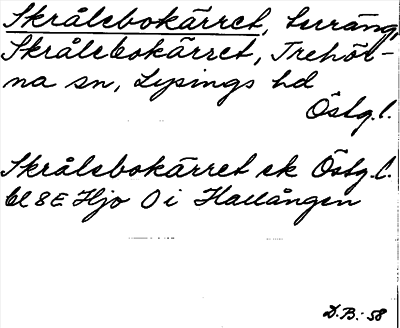 Skrålebokärret,
Skrålebokärret, Trehör-
na sn, Lysings hd
Östg.l.
Skrålebokärret ek Östg.l.
bl 8E Hjo 0 i
D.B.: 58